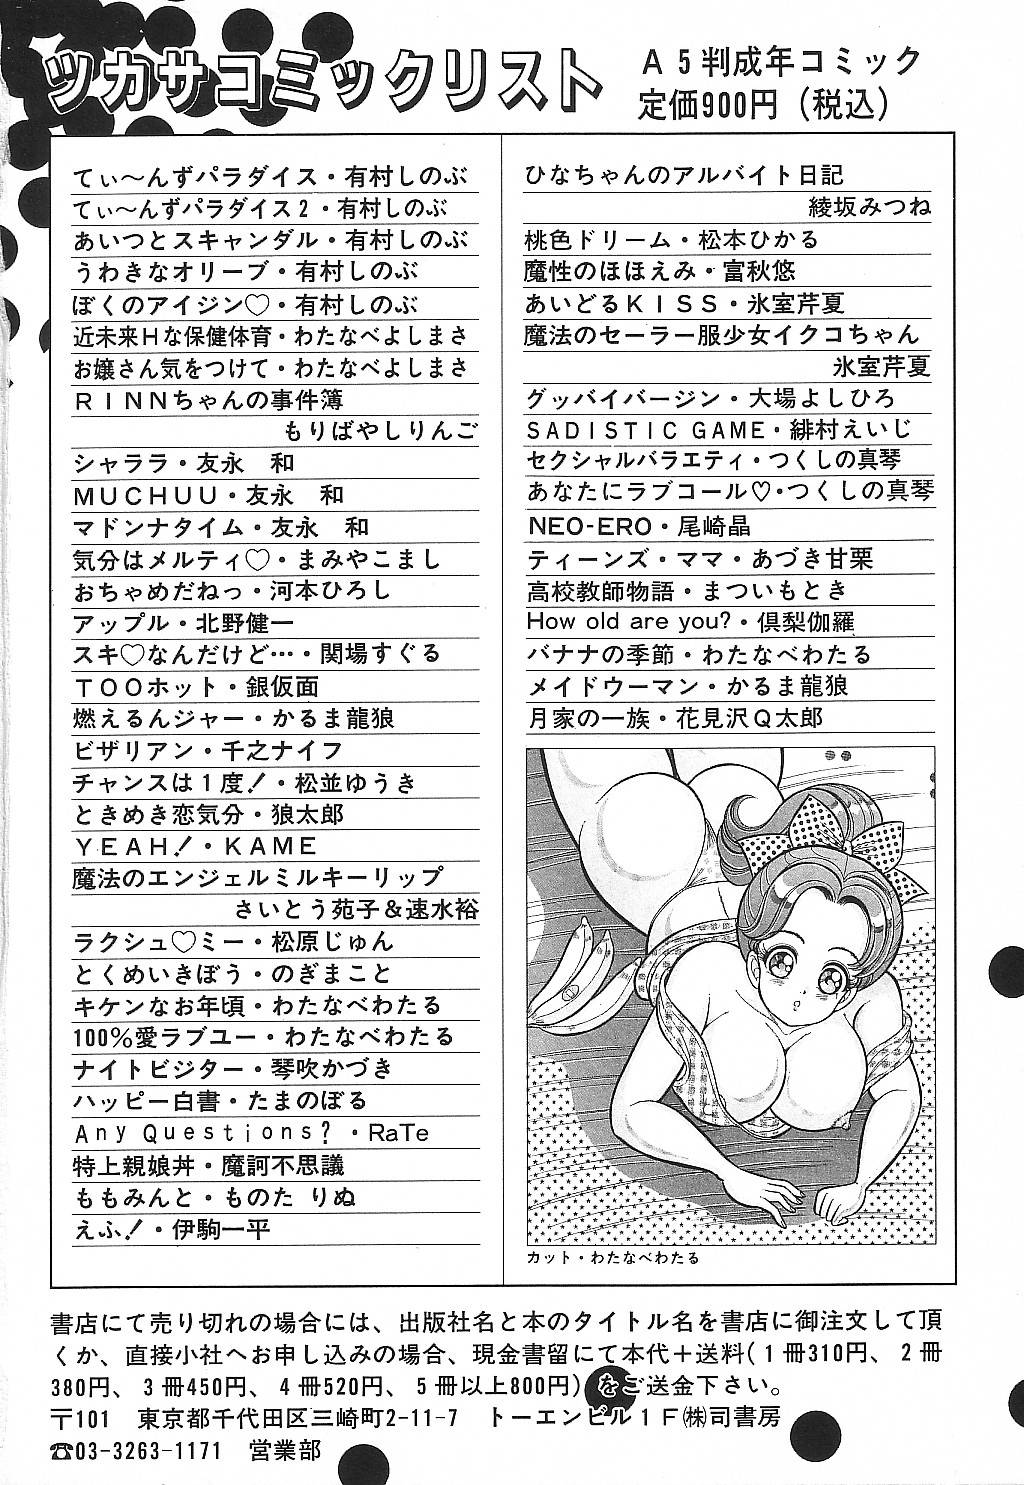 ツカサコミックリスト
A5判成年コミック
定価900円（税込）
てぃ〜んずパラダイス・有村しのぶ
てぃ〜んずパラダイス2・有村しのぶ
あいつとスキャンダル・有村しのぶ
うわきなオリーブ・有村しのぶ
ぼくのアイジン♡・有村しのぶ
近未来Hな保健体育・わたなべよしまさ
お嬢さん気をつけて・わたなべよしまさ
RINNちゃんの事件簿
もりばやしりんご
シャララ・友永　和
MUCHUU・友永　和
マドンナタイム・友永　和
気分はメルティ♡・まみやこまし
おちゃめだねっ・河本ひろし
アップル・北野健一
スキ♡なんだけど…・関場すぐる
TOOホット・銀仮面
燃えるんジャー・かるま龍狼
ビザリアン・千之ナイフ
チャンスは1度！・松並ゆうき
ときめき恋気分・狼太郎
YEAH！・KAME
魔法のエンジェルミルキーリップ
さいとう苑子＆速水裕
ラクシュ♡ミー・松原じゅん
とくめいきぼう・のぎまこと
キケンなお年頃・わたなべわたる
100％愛ラブユー・わたなべわたる
ナイトビジター・琴吹かづき
ハッピー白書・たまのぼる
Any Questions?・RaTe
特上親娘丼・魔訶不思議
ももみんと・ものた りぬ
えふ！・伊駒一平
ひなちゃんのアルバイト日記
綾坂みつね
桃色ドリーム・松本ひかる
魔性のほほえみ・富秋悠
あいどるKISS・氷室芹夏
魔法のセーラー服少女イクコちゃん
氷室芹夏
グッバイバージン・大場よしひろ
SADISTIC GAME・緋村えいじ
セクシャルバラエティ・つくしの真琴
あなたにラブコール♡・つくしの真琴
NEO-ERO・尾崎晶
ティーンズ・ママ・あづき甘栗
高校教師物語・まついもとき
How old are you?・倶梨伽羅
バナナの季節・わたなべわたる
メイドウーマン・かるま龍狼
月家の一族・花見沢Q太郎
カット・わたなべわたる
書店にて売り切れの場合には、出版社名と本のタイトル名を書店に御注文して頂
くか、直接小社へお申し込みの場合、現金書留にて本代＋送料(1冊310円、2冊
380円、3冊450円、4冊520円、5冊以上800円)をご送金下さい。
〒101　東京都千代田区三崎町2-11-7　トーエンビル1F㈱司書房
☎03-3263-1171　営業部